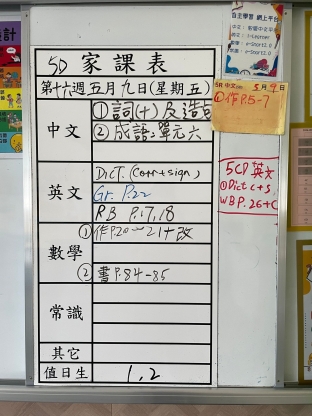 5D 家課表
第十六週五月九日(星期五)
中文
①詞(十)及造句
②成語:單元六
英文
Dict. (corr + sign)
Gr. P.22
RB P.17,18
數學
①作P.20~21+改
②書P.84-85
常識
其它
值日生
1, 2
自主學習 網上平台
5R 中文
5月9日
①作P.5-7
5CD 英文
①Dict C+S
WB P.26+C